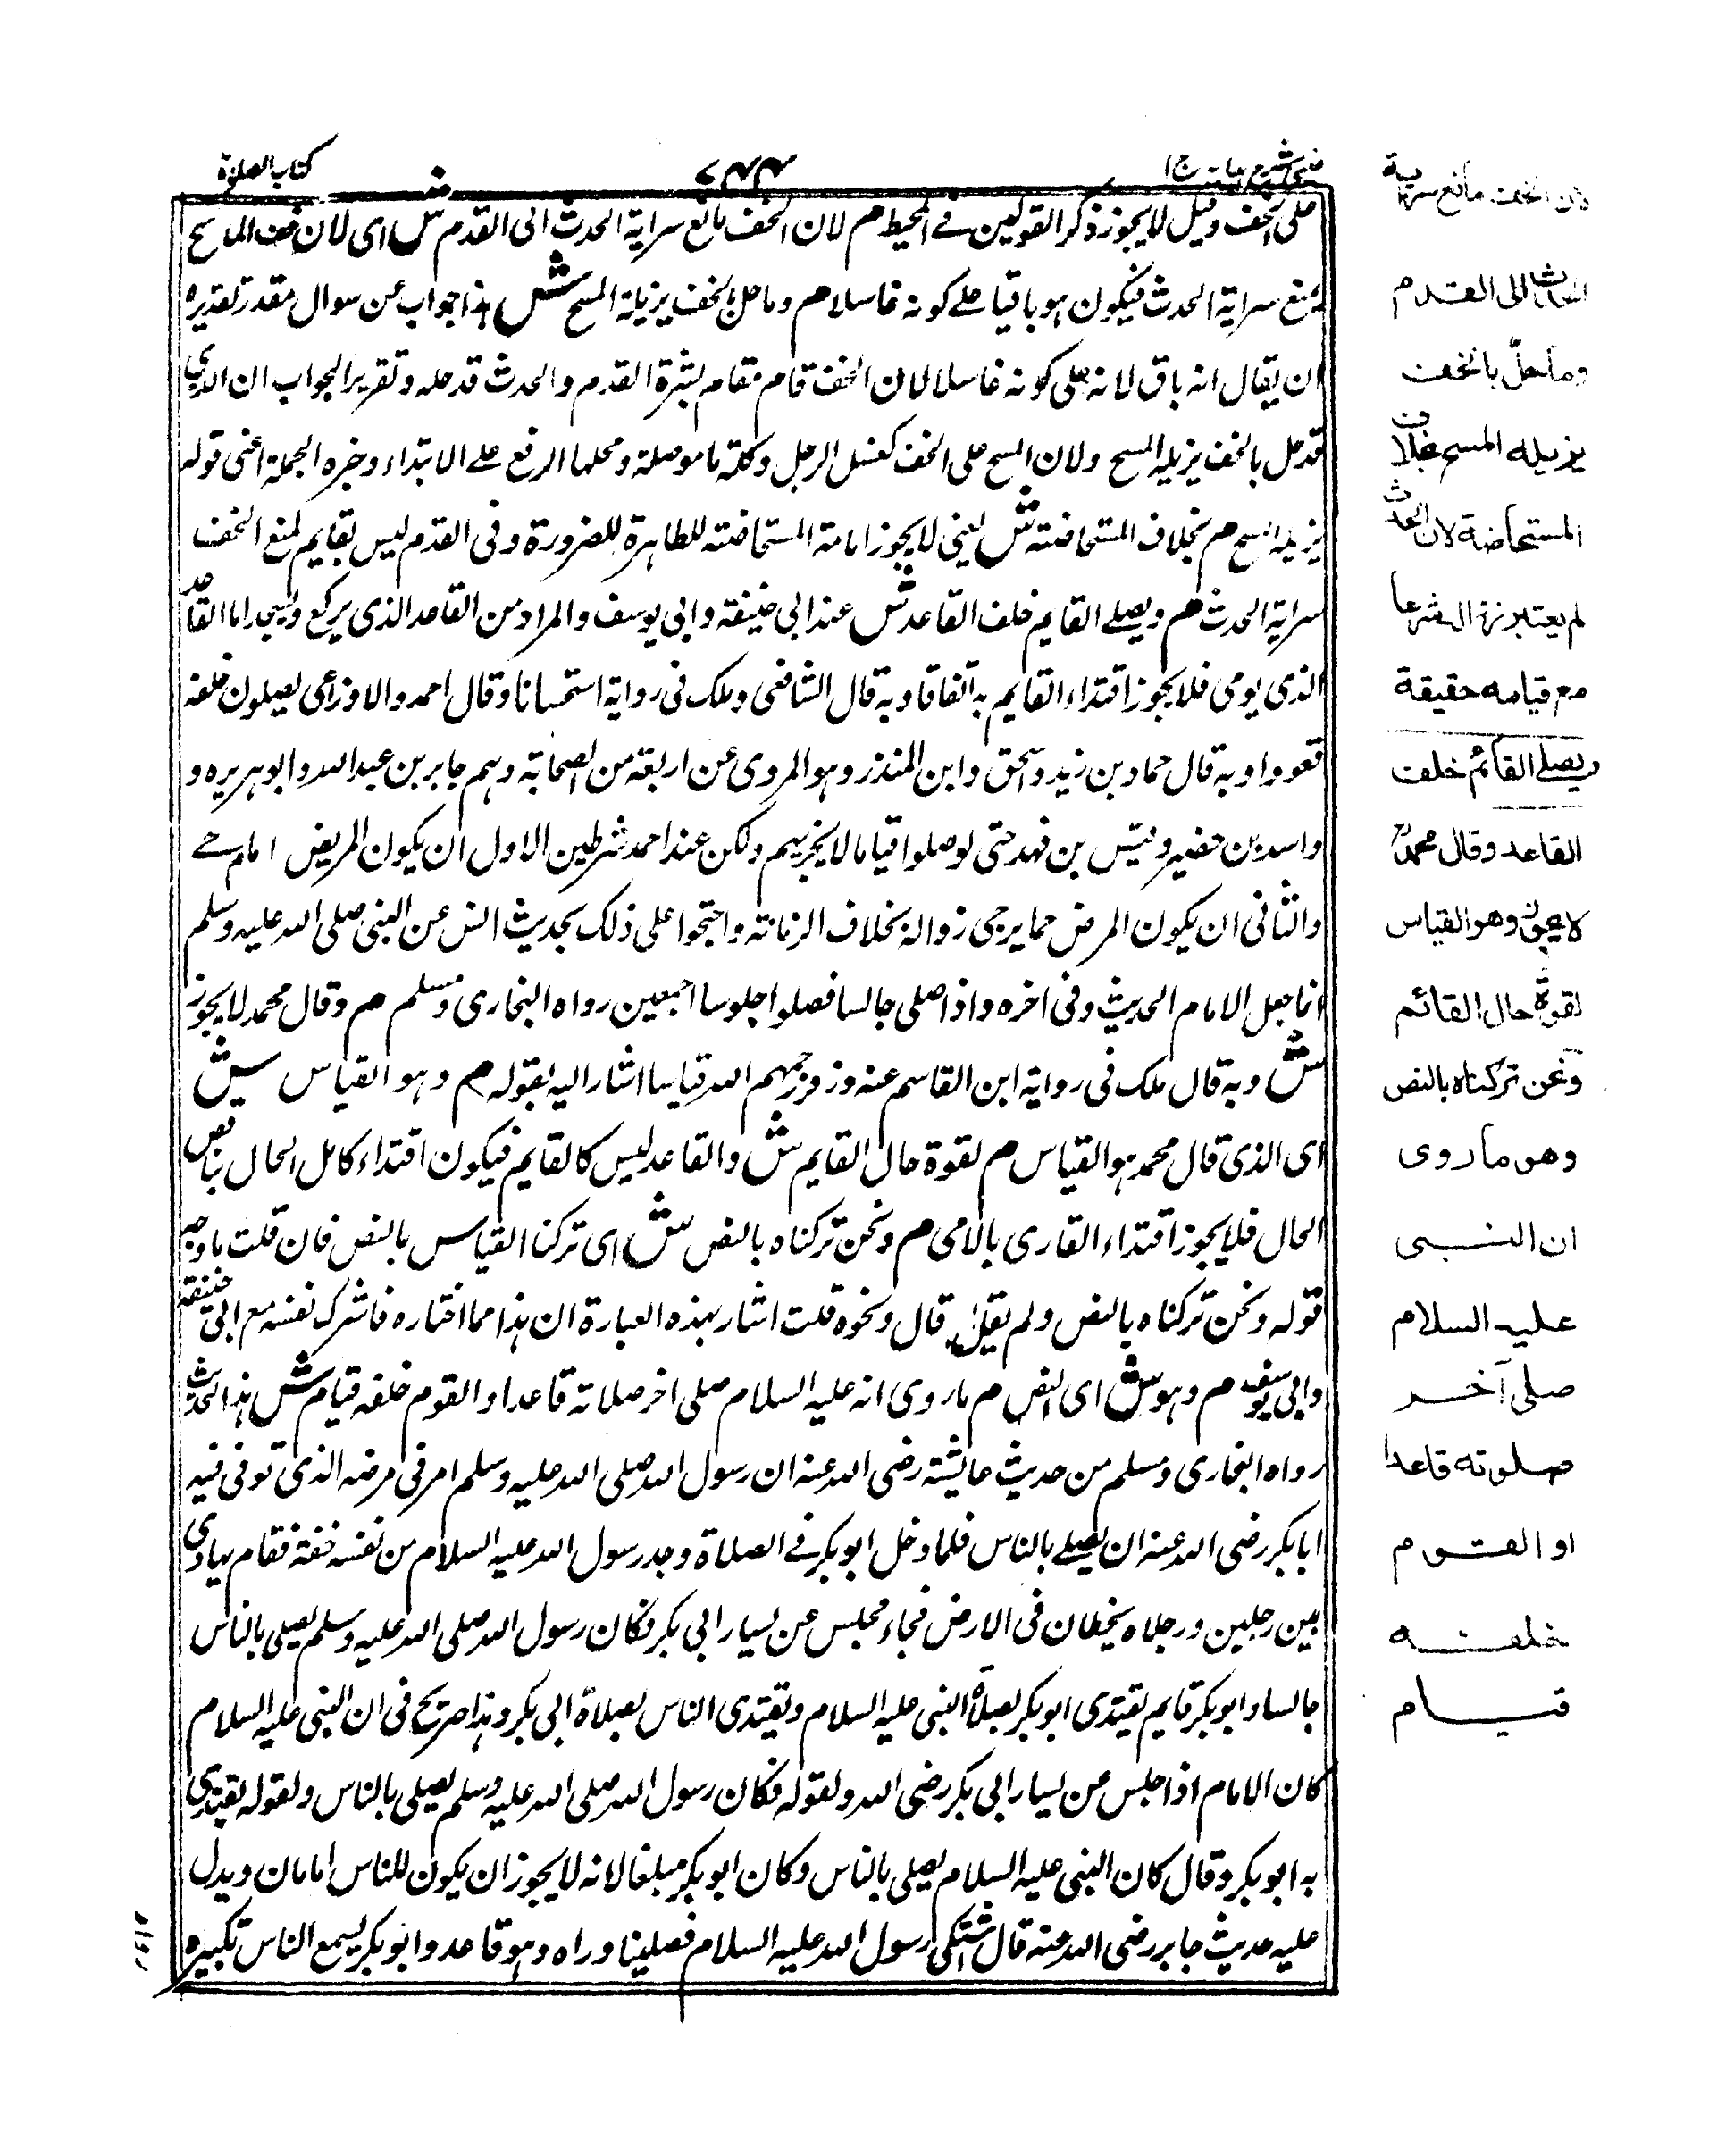 عینی شرح ہدایہ ج ۱
۷۴۴
كتاب الصلوة
على الخف وقيل لا يجوز ذكر القولين فے المحيط م لان الخف مانع سراية الحدث الى القدم ش اى لان خف الماسح
يمنع سراية الحدث فيكون هو باقيا علے كونه غاسلا م وما حل بالخف يزيله المسح ش هذا جواب عن سوال مقدر تقديره
ان يقال انه باق لانه على كونه غاسلا لان الخف قام مقام بشرة القدم والحدث قد حله وتقرير الجواب ان الذى
قد حل بالخف يزيله المسح ولان المسح على الخف كغسل الرجل وكلمة ما موصلة ومحلها الرفع علے الابتداء وخبره الجملة اعنى قوله
يزيله المسح م بخلاف المستحاضة ش يعنى لا يجوز امامة المستحاضة للطاهرة للضرورة وفى القدم ليس بقايم لمنع الخف
سراية الحدث م ويصلے القايم خلف القاعد ش عند ابى حنيفة وابى يوسف والمراد من القاعد الذى يركع ويسجد اما القاعد
الذى يومى فلا يجوز اقتداء القايم به اتفاقا وبه قال الشافعى وملك فى رواية استحسانا وقال احمد والاوزاعى يصلون خلفه
قعودا وبه قال حماد بن زيد واسحق وابن المنذر وهو المروى عن اربعة من الصحابة وهم جابر بن عبد الله وابو هريره و
واسد بن حضير وقيس بن فهد حتى لو صلوا قياما لا يجزيهم ولكن عند احمد شرطين الاول ان يكون المريض امام حے
والثانى ان يكون المرض مما يرجى زواله بخلاف الزمانة واحتجوا على ذلك بحديث انس عن النبى صلى الله عليه وسلم
انما جعل الامام الحديث وفى اخره واذا صلى جالسا فصلوا جلوسا اجمعين رواه البخارى ومسلم م وقال محمد لا يجوز
ش وبه قال ملك فى رواية ابن القاسم عنه وزفر رحمهم الله قياسا اشار اليه بقوله م وهو القياس ش
اى الذى قال محمد هو القياس م لقوة حال القايم ش والقاعد ليس كالقايم فيكون اقتداء كامل الحال بناقص
الحال فلا يجوز اقتداء القارى بالامى م ونحن تركناه بالنص ش اى تركنا القياس بالنص فان قلت ما وجه
قوله ونحن تركناه بالنص ولم يقل قال ونحوه قلت اشار بهذه العبارة ان هذا مما اختاره فاشرك نفسه مع ابى حنيفة
وابى يوسف م وهو ش اى النص م ما روى انه عليه السلام صلى اخر صلاته قاعدا والقوم خلفه قيام ش هذا الحديث
رواه البخارى ومسلم من حديث عايشة رضى الله عنه ان رسول الله صلى الله عليه وسلم امر فى مرضه الذى توفى فيه
ابا بكر رضى الله عنه ان يصلے بالناس فلما دخل ابو بكر فے الصلاة وجد رسول الله عليه السلام من نفسه خفة فقام يهادى
بين رجلين ورجلاه يخطان فى الارض فجاء فجلس عن يسار ابى بكر فكان رسول الله صلى الله عليه وسلم يصلى بالناس
جالسا وابو بكر قايم يقتدى ابو بكر بصلاة النبى عليه السلام ويقتدى الناس بصلاة ابى بكر وهذا صريح فى ان النبى عليه السلام
كان الامام اذا جلس عن يسار ابى بكر رضى الله ولقوله فكان رسول الله صلى الله عليه وسلم يصلى بالناس ولقوله يقتدى
به ابو بكر وقال كان النبى عليه السلام يصلى بالناس وكان ابو بكر مبلغا لانه لا يجوز ان يكون للناس امامان ويدل
عليه حديث جابر رضى الله عنه قال اشتكى رسول الله عليه السلام فصلينا وراه وهو قاعد وابو بكر يسمع الناس تكبيره
لان الخف مانع سراية
الحدث الى القدم
وما حلّ بالخف
يزيله المسح بخلاف
المستحاضة لان الحدث
لم يعتبر زواله شرعا
مع قيامه حقيقة
ويصلے القائم خلف
القاعد وقال محمد
لا يجوز وهو القياس
لقوة حال القائم
ونحن تركناه بالنص
وهو ما روى
ان النبى
عليه السلام
صلى آخر
صلوته قاعدا
او القوم
خلفه
قيام